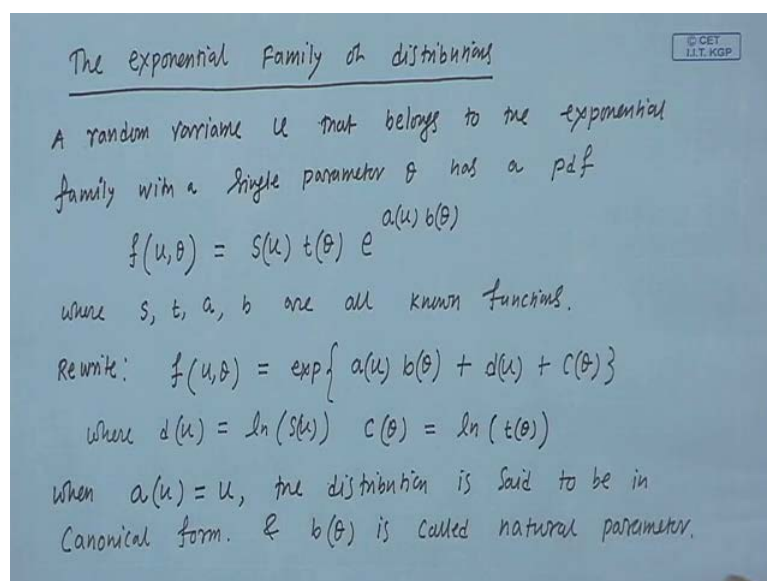 The exponential Family of distributions
© CET
I.I.T. KGP
A random varriable u that belongs to the exponential
family with a single parameter θ has a pdf
f(u,θ) = s(u) t(θ) e^{a(u) b(θ)}
where s, t, a, b are all known functions.
Rewrite: f(u,θ) = exp{ a(u) b(θ) + d(u) + c(θ)}
where d(u) = ln(s(u)) c(θ) = ln(t(θ))
when a(u) = u, the distribution is said to be in
Canonical form. & b(θ) is called natural parameter.